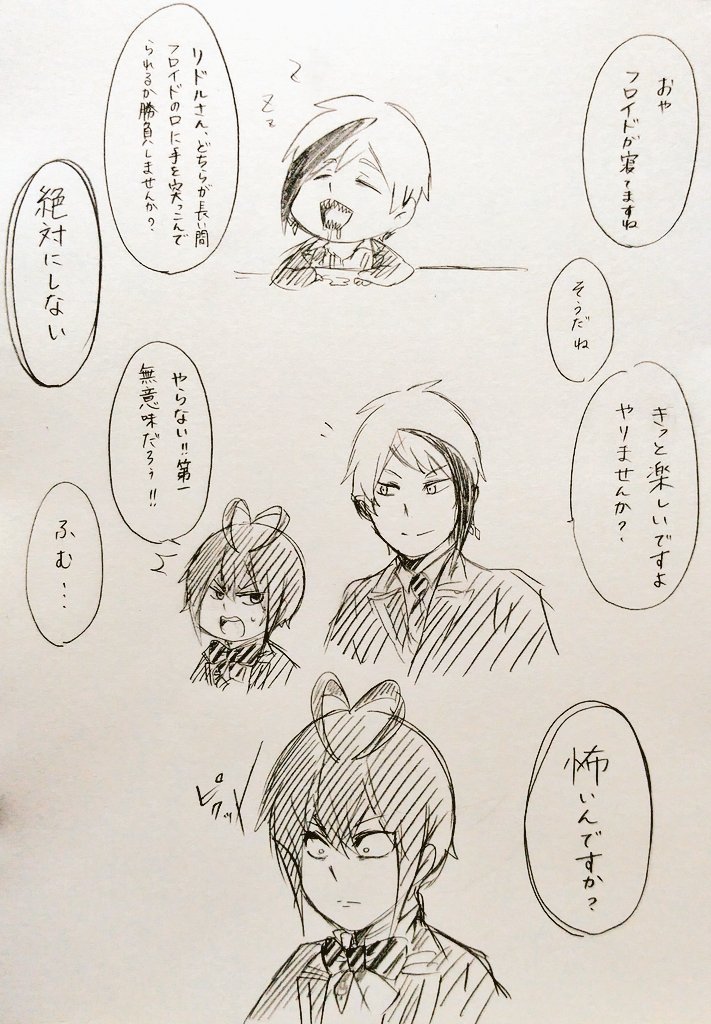 おや
フロイドが寝てますね
そうだね
リドルさん、どちらが長い間
フロイドの口に手を突っこんで
られるか勝負しませんか?
絶対にしない
きっと楽しいですよ
やりませんか?
やらない!!第一
無意味だろう!!
ふむ…
怖いんですか?
ピクッ